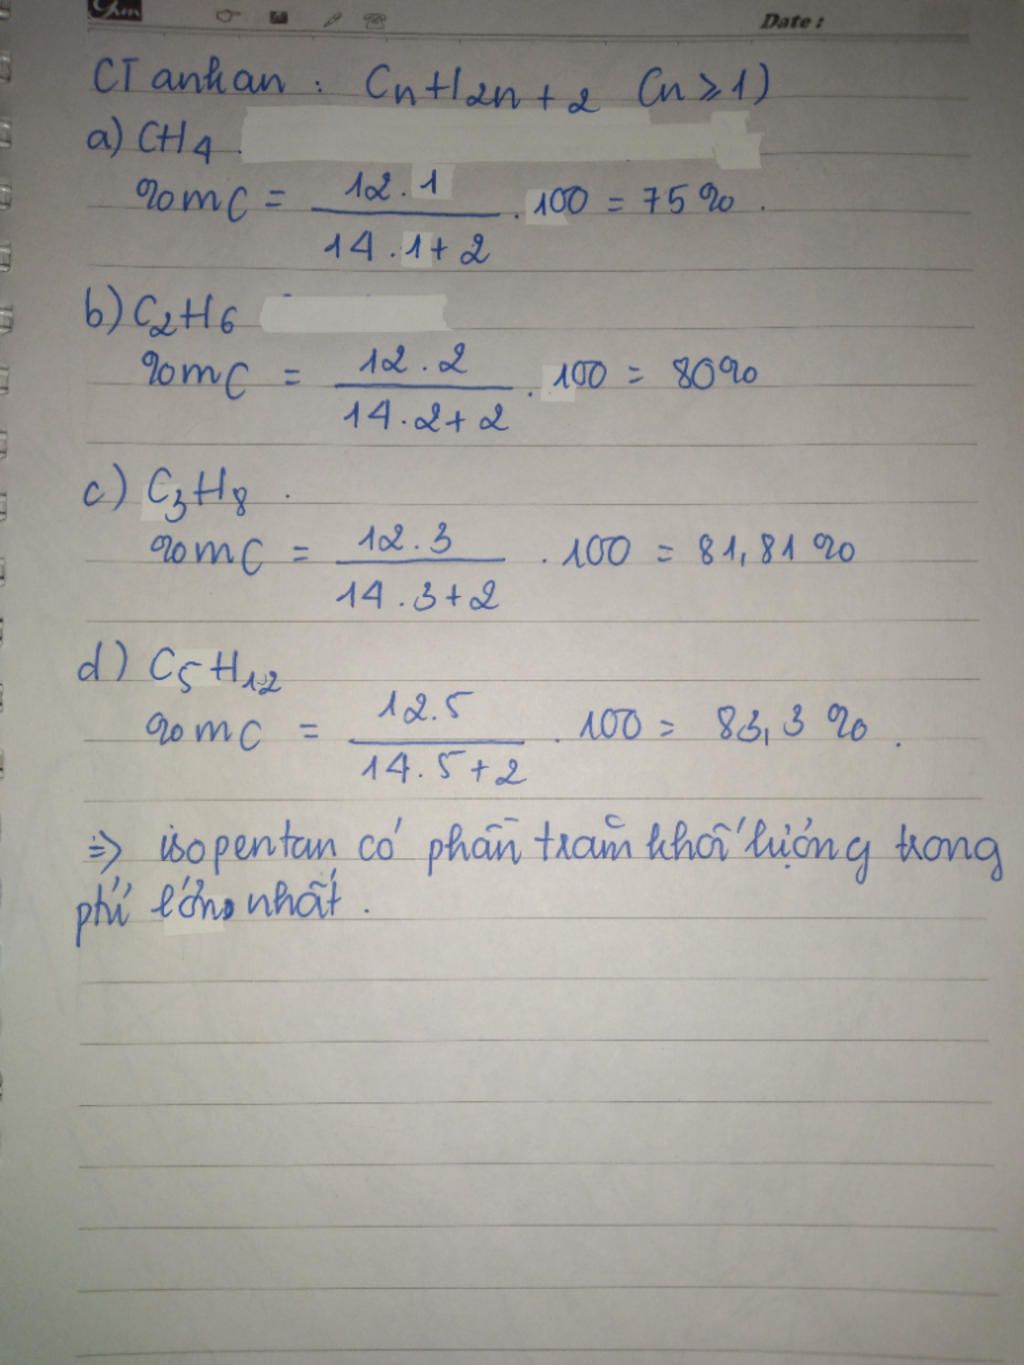 Date :
CT ankan : CnH2n + 2 (n ≥ 1)
a) CH4
%mC = 12.1 / 14.1+2 . 100 = 75% .
b) C2H6
%mC = 12.2 / 14.2+2 . 100 = 80%
c) C3H8 .
%mC = 12.3 / 14.3+2 . 100 = 81,81%
d) C5H12
%mC = 12.5 / 14.5+2 . 100 = 83,3% .
=> isopentan có phần trăm khối lượng trong
lớn nhất .